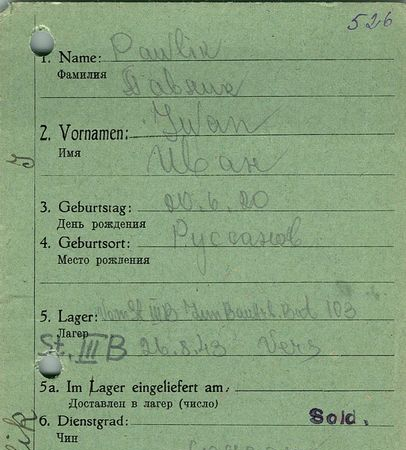 526
1. Name: Pawlik
Фамилия Павлик
2. Vornamen: Iwan
Имя Иван
3. Geburtstag: 20.6.20
День рождения
4. Geburtsort: Руссанов
Место рождения
5. Lager: Vom St. III B zum Bau 103
Лагер
St. III B 26.8.43 Vers
5a. Im Lager eingeliefert am
Доставлен в лагер (число)
6. Dienstgrad: Sold.
Чин